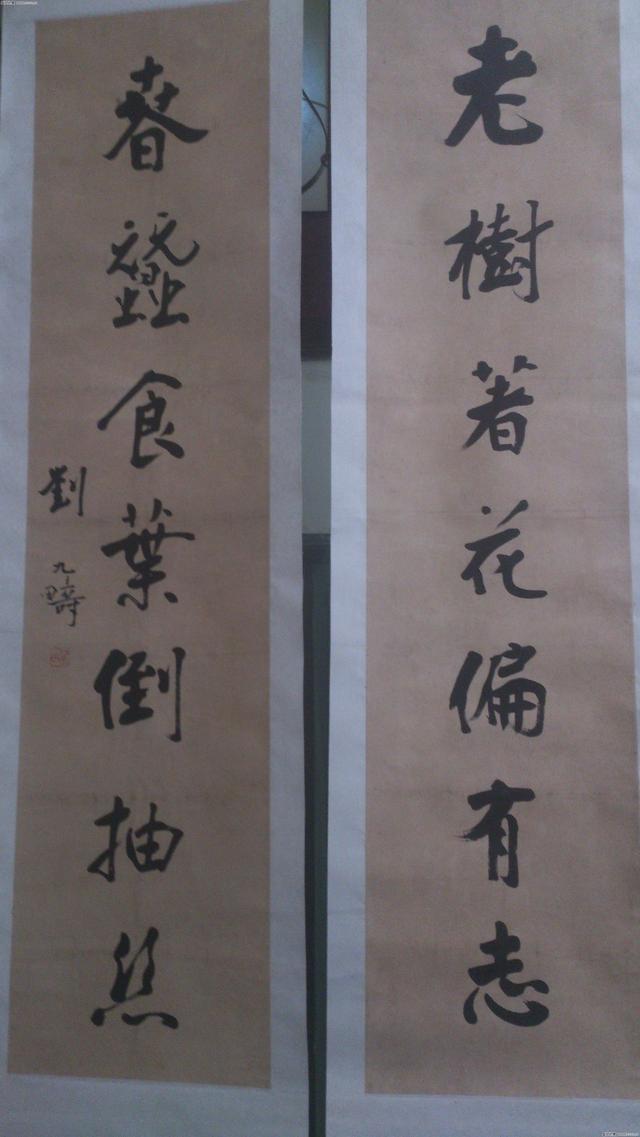 老樹著花偏有志
春蠶食葉倒抽絲
劉九疇